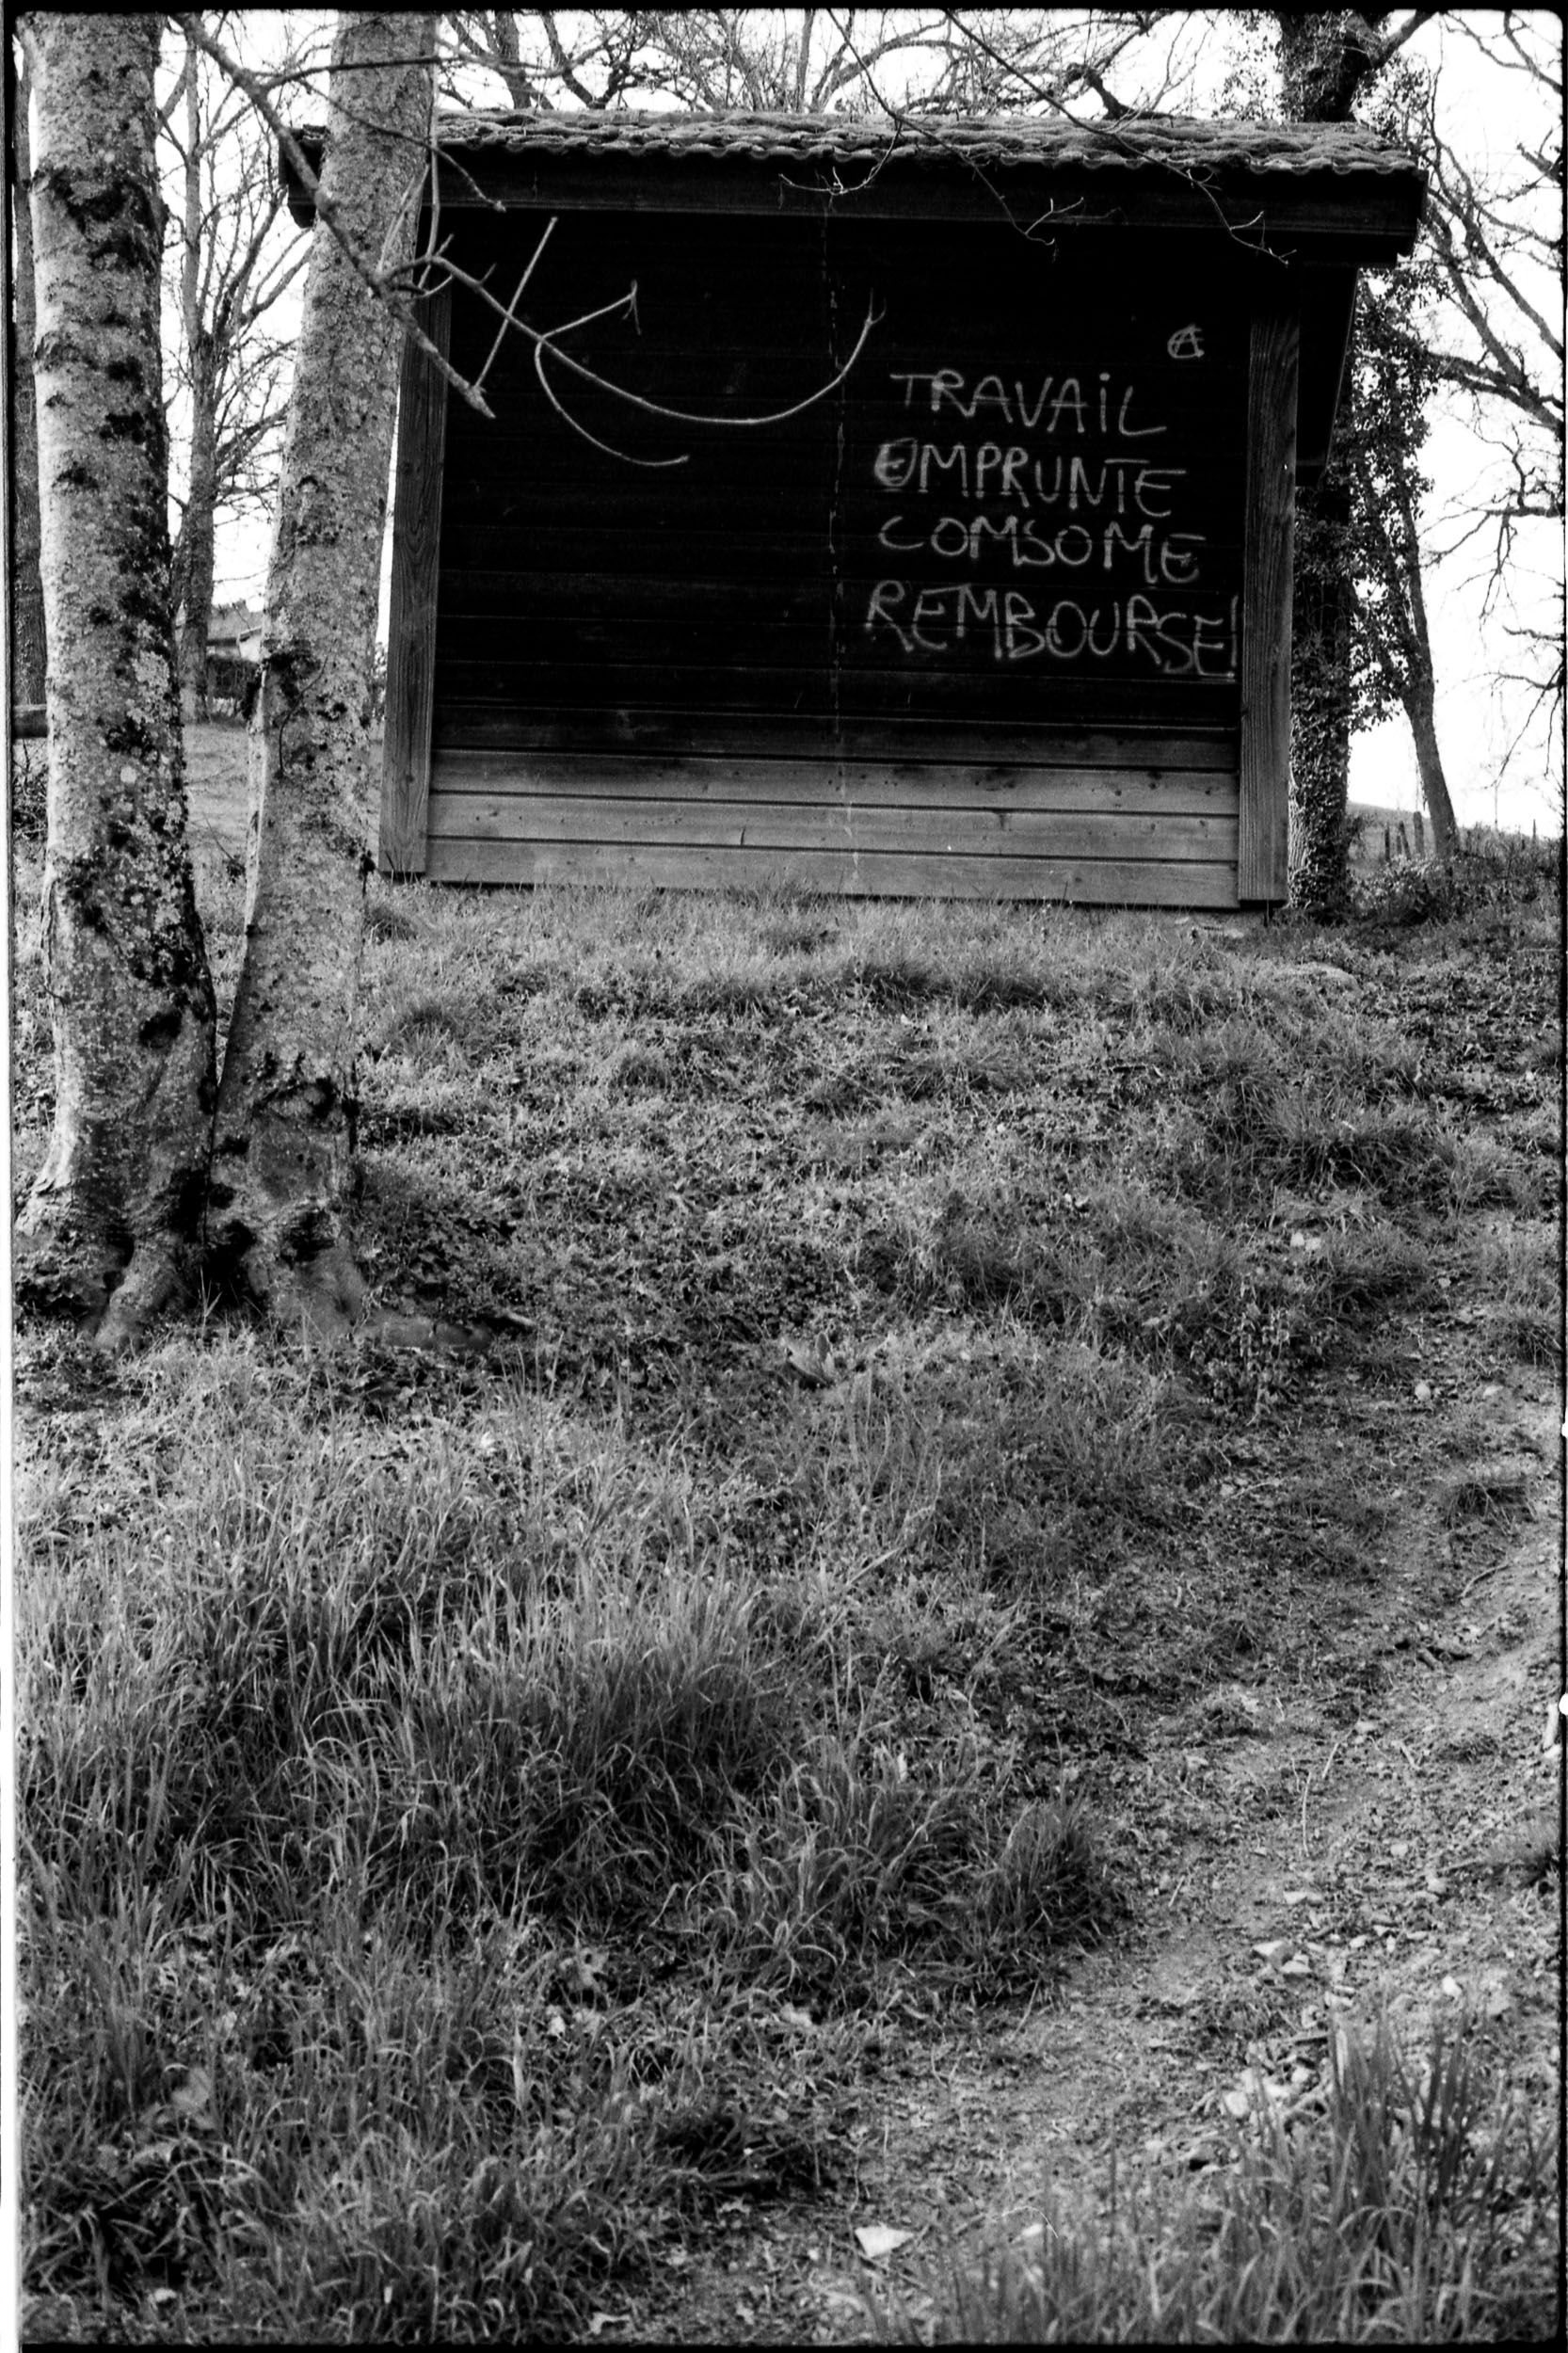 Ⓐ
TRAVAiL
EMPRUNTE
COMSOME
REMBOURSE!